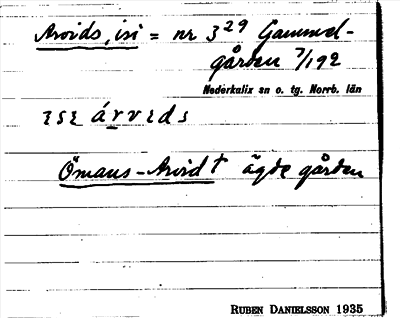 Arvids, isi = nr 3²⁹ Gammel-
gården 7/192
Nederkalix sn o. tg. Norrb. län
árvɩds
Ömans-Arvid † ägde gården
RUBEN DANIELSSON 1935